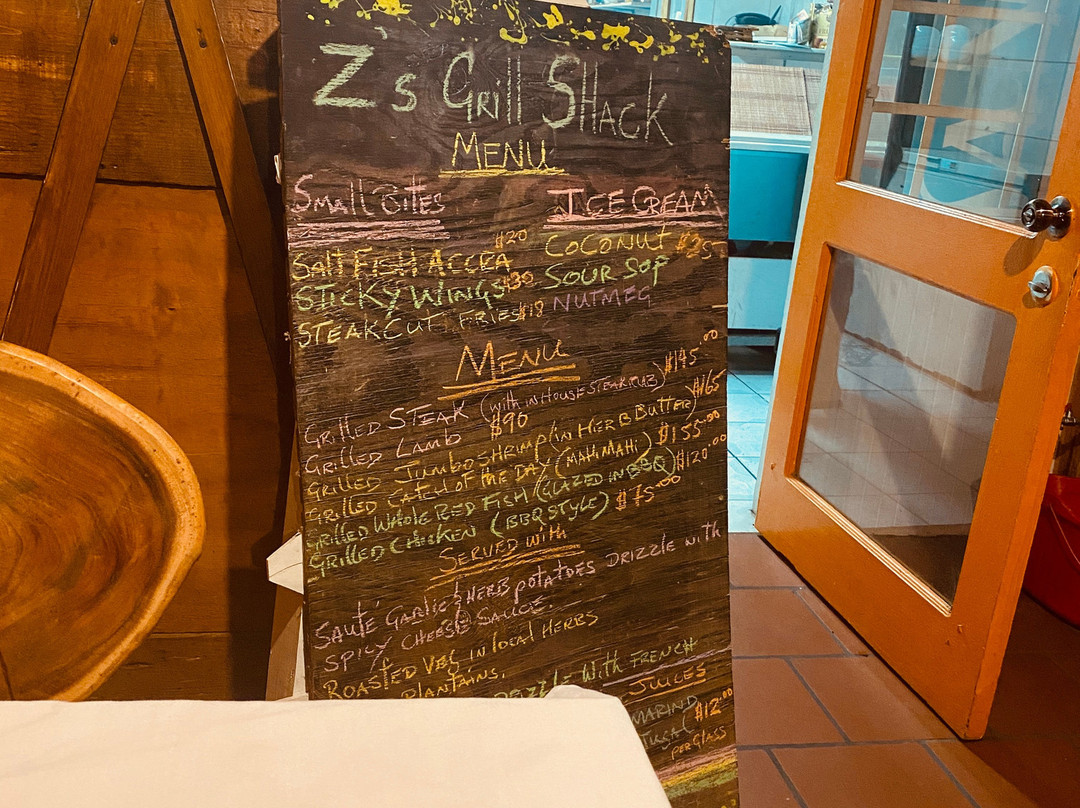 Z's Grill Shack
MENU
Small Bites
SALT FISH ACCRA $20
STICKY WINGS $30
STEAK CUT FRIES $18
ICE CREAM
COCONUT $25
SOUR SOP
NUTMEG
MENU
Grilled STEAK (with in House STEAK RUB) $145.00
Grilled LAMB $90
Grilled Jumbo shrimp (in HERB Butter) $165
Grilled CATCH OF THE DAY (MAHI MAHI) $155.00
Grilled WHOLE RED FISH (GLAZED IN BBQ) $120.00
Grilled CHICKEN (BBQ STYLE) $75.00
SERVED with
SAUTÉ GARLIC & HERB POTATOES DRIZZLE with
SPICY CHEESE SAUCE.
ROASTED VEG in local HERBS
PLANTAINS.
DRIZZLE With FRENCH
JUICES
MARIND $12.00
per GLASS